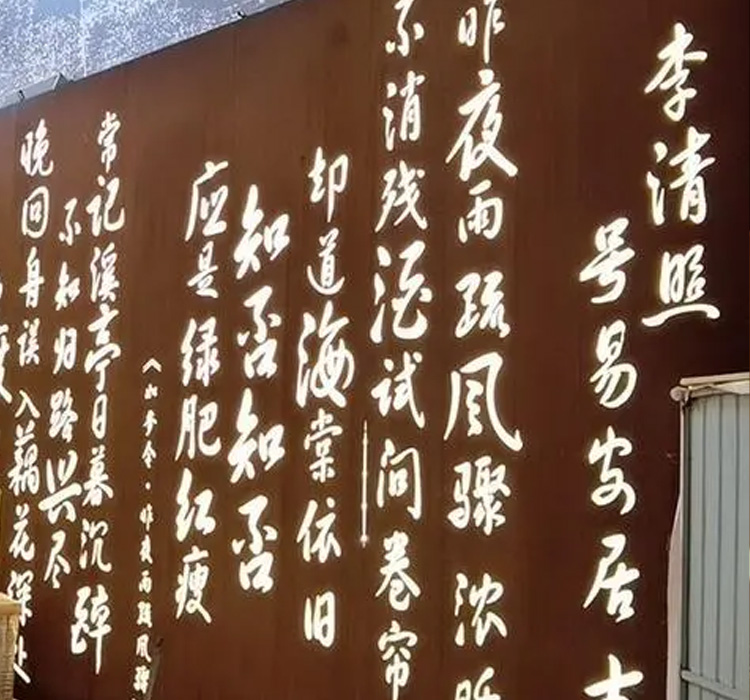 李清照
号易安居士
昨夜雨疏风骤 浓
不消残酒试问卷帘
却道海棠依旧
知否知否
应是绿肥红瘦
《如梦令·昨夜雨疏风骤
常记溪亭日暮沉醉
不知归路兴尽
晚回舟误入藕花深处